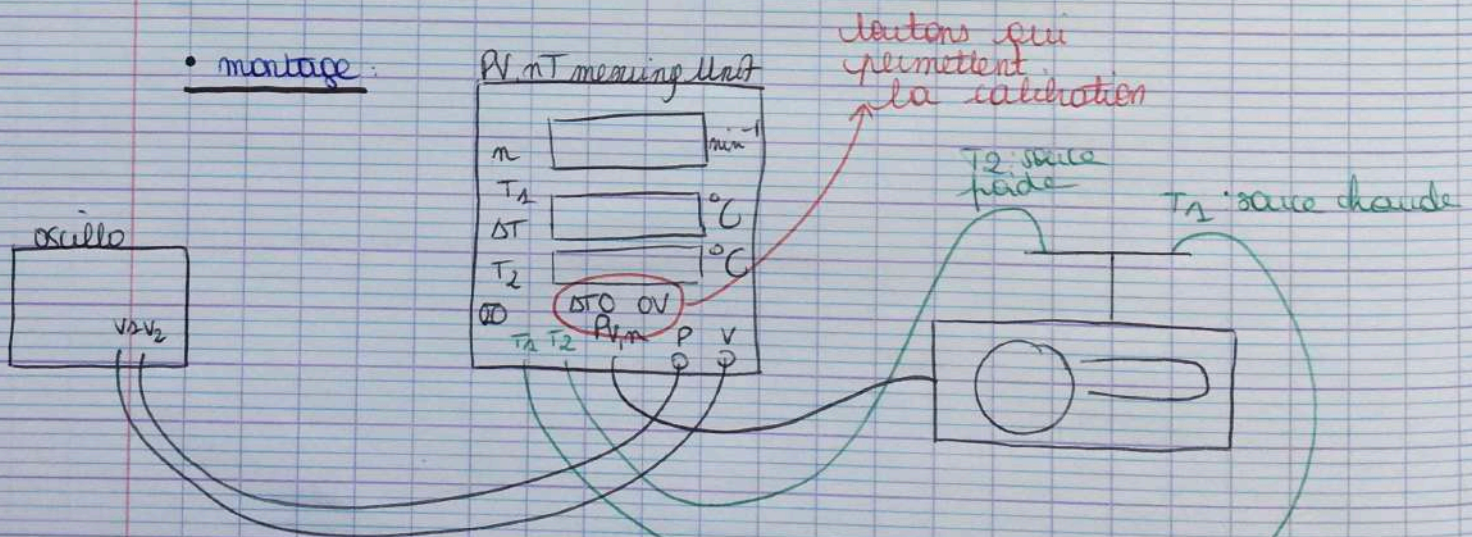 • montage :
PV nT mesuring Unit
boutons qui
permettent
la calibration
n
min⁻¹
T1
°C
ΔT
T2
°C
ΔTO OV
PV,n
T1 T2 P V
oscillo
V1 V2
T2 source
froide
T1 source chaude